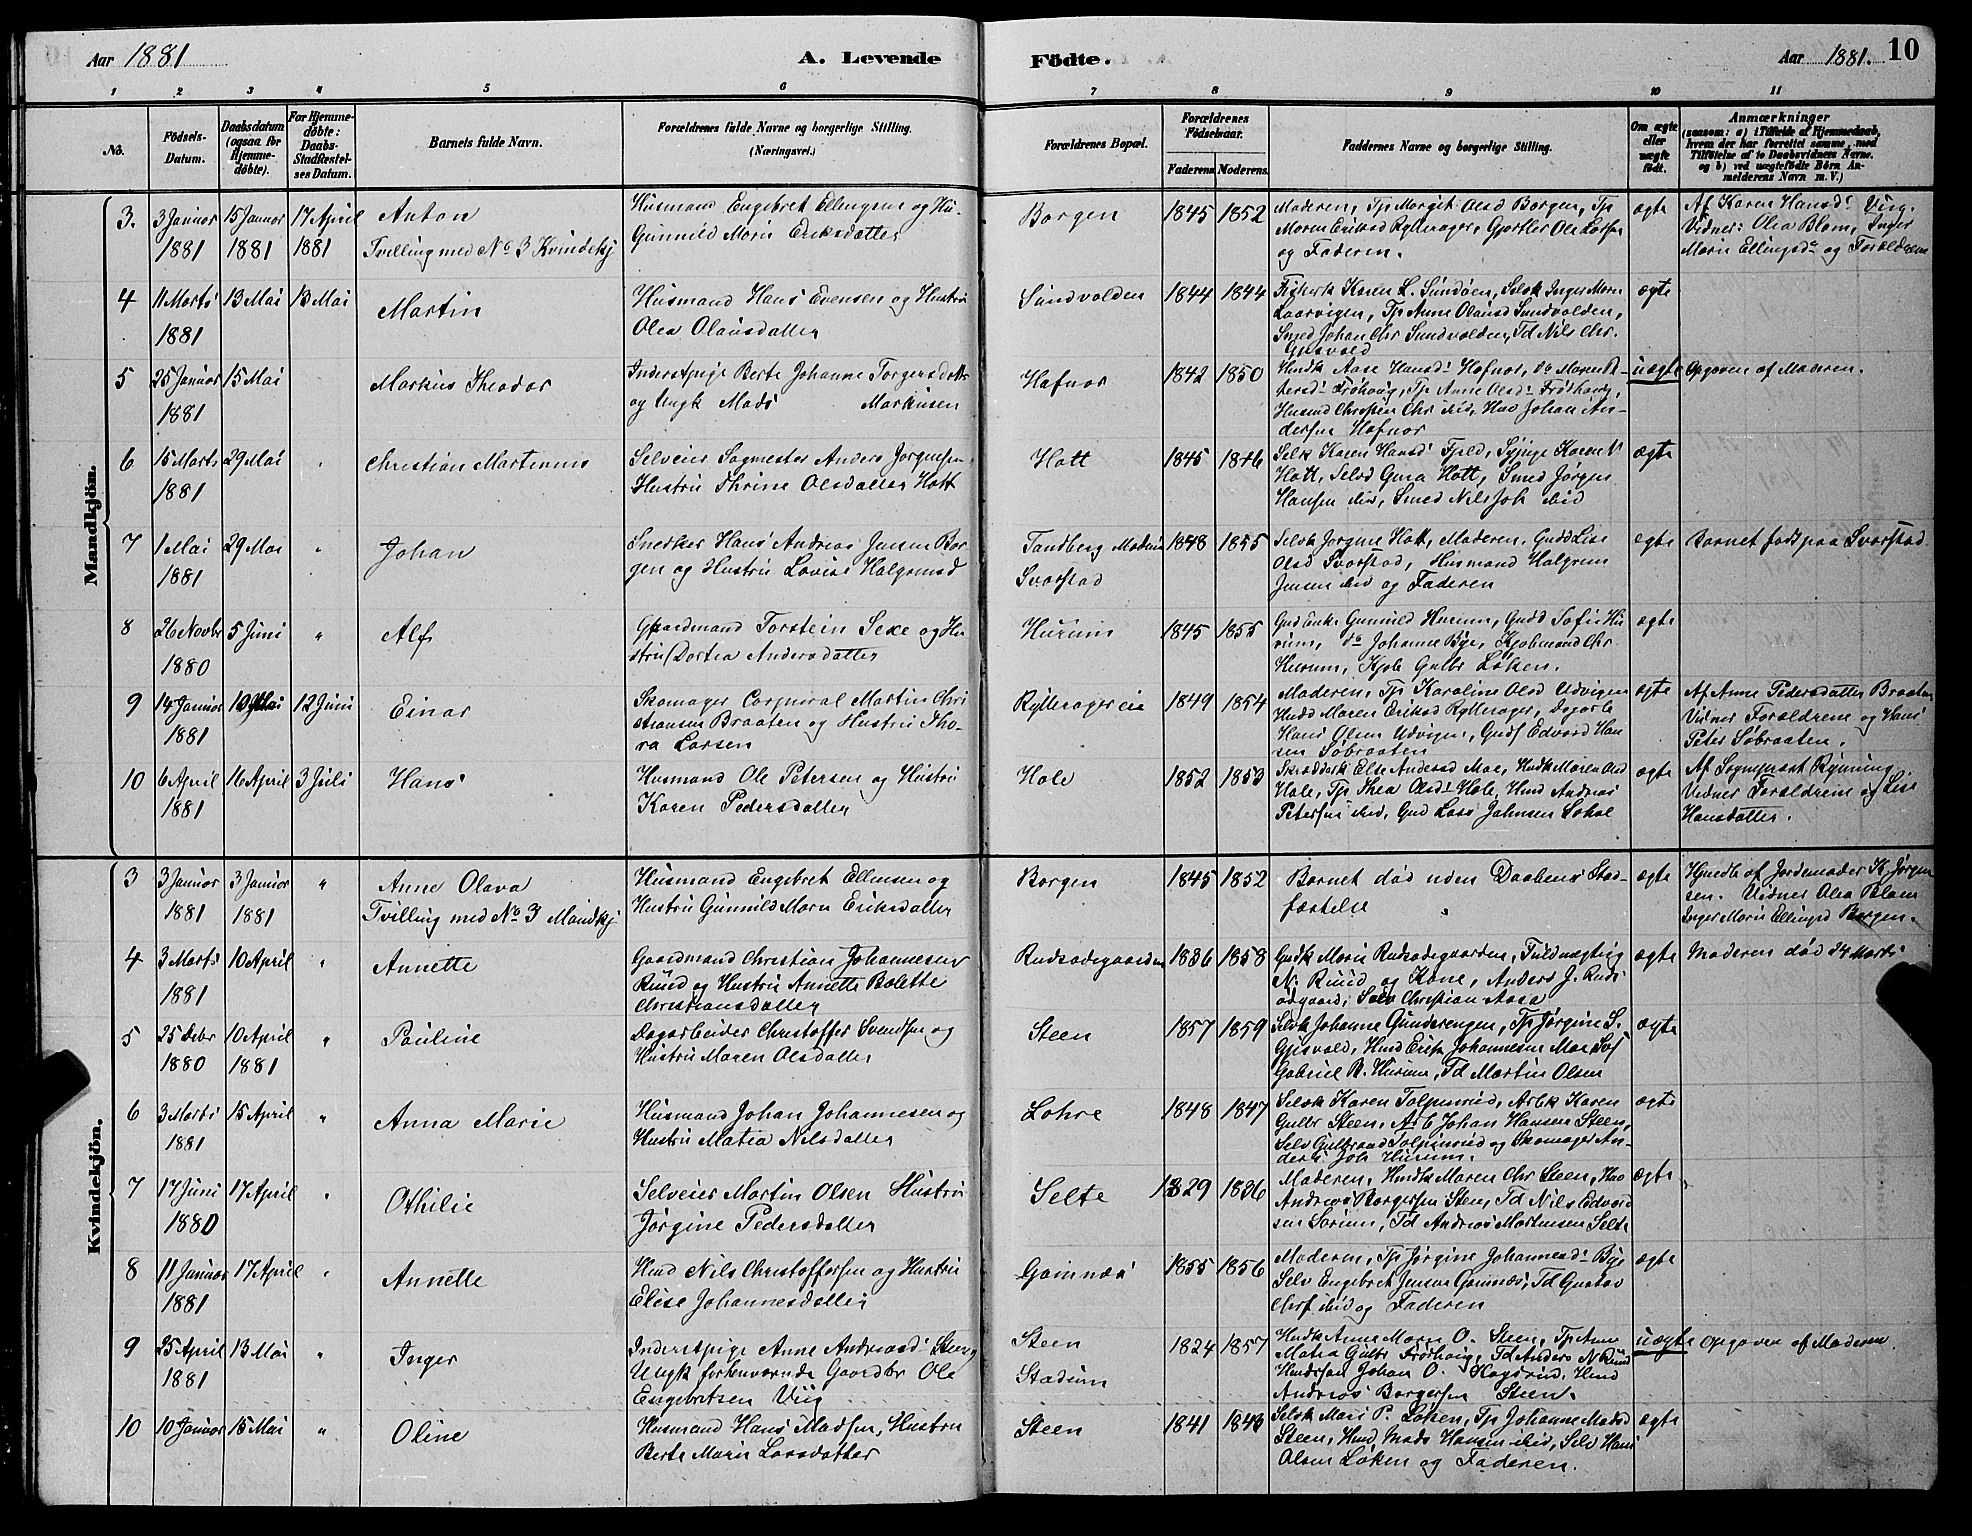 Aar 1881
A. Levende
Födte.
Aar 1881. 10
1 2 3 4 5 6 7 8 9 10 11
No.
Födsels-
Datum.
Daabsdatum
(ogsaa for
Hjemme-
døbte).
For Hjemme-
døbte:
Daabs-
Stadfæstel-
ses Datum.
Barnets fulde Navn.
Forældrenes fulde Navne og borgerlige Stilling.
(Næringsvei.)
Forældrenes Bopæl.
Forældrenes
Födselsaar.
Faderens. Moderens.
Faddernes Navne og borgerlige Stilling.
Om ægte
eller
uægte
födt.
Anmærkninger
(saasom: a) i Tilfælde af Hjemmedaab,
hvem der har forrettet samme, med
Tilföielse af to Daabsvidners Navne.
og b) ved uægtefödte Börn An-
melderens Navn m. V.)
Mandkjön.
3. 3 Januar 15 Januar 17 April
1881 1881 1881
Anton
Tvilling med No 3 Kvindekj
Husmand Engebret Ellingsen og Hu-
Gunnild Marie Eriksdatter
Borgen 1845 1852
Moderen, Tp Margit Olsd Borgen, Tp
Maren Eriksd Rytterager, Gjørtler Ole
og Faderen.
ægte
Af Karen Hansd
Vidner: Olea Blom, Inger
Marie Ellingsd og Forældrene
4 11 Marts 13 Mai 13 Mai
1881
Martin
Husmand Hans Evensen og Hustru
Olea Olausdatter
Sundvolden 1844 1844
Karen L. Sundøen, Selvk Inger Marie
Laarvigen, Tp Anne Olausd Sundvolden,
Smed Johan Chr Sundvolden, Td Nils Chr.
Gjesvold
ægte
5 25 Januar 15 Mai
1881
Markus Theodor
Inderstpige Berte Johanne Torgersdatter
og Ungk Mads Markusen
Hafnor 1842 1850
Hmdk Aase Hansd Hafnor, Do Maren
Frøhaug, Tp Anne Olsd Frøhaug,
Husmd Christen Chr ibid, Hmd Johan An-
dersen Hafnor
uægte
Opgaven af Moderen.
6 15 Marts 29 Mai "
1881
Christian Martinius
Selveier Sagmester Anders Jørgensen
Hustru Thrine Olsdatter Hott
Hott 1845 1846
Selvk Karen Hansd Fjeld, Sypige Karen
Hott, Selvd Gina Hott, Smed Jørgen
Hansen ibid, Smed Nils Joh ibid
ægte
7 1 Mai 29 Mai "
1881
Johan
Snedker Hans Andreas Jensen Bor-
gen og Hustru Lovise Halgrimsd
Tandberg Moderen
Svarstad
1848 1855
Selvk Jørgine Hott, Moderen, Gudd Lise
Olsd Svarstad, Husmand Halgrim
Jensen ibid og Faderen
ægte
Barnet født paa Svarstad
8 26 Novbr 5 Juni "
1880
Alf
Gaardmand Torstein Seke og Hu
stru Dortea Andersdatter
Hurum 1845 1855
Gunnild Hurum, Gudd Sofie Hu
rum, do Johanne Bye, Kjøbmand Chr
Hurum, Kjøb Gulbr Løken.
ægte
9 14 Januar 19 Mai 12 Juni
1881
Einar
Skomager Corporal Martin Chri
stiansen Braaten og Hustru Tho-
ra Larsen
Rytteragereie 1849 1854
Moderen, Tp Karoline Olsd Udvigen
Maren Eriksd Rytterager, Dagarb
Hans Olsen Udvigen, Edvard Han
sen Søbraaten
ægte
Af Anne Pedersdatter Braaten
Vidner Forældrene og Hans
Peter Søbraaten.
10 6 April 16 April 3 Juli
1881
Hans
Husmand Ole Petersen og Hustru
Karen Pedersdatter
Hole 1852 1853
Skræddk Else Andersd Moe, Hmdk Maren Olsd
Hole, Tp Thea Olsd Hole, Hmd Andreas
Petersen ibid, Gmd Lars Johnsen Løhol
ægte
Af Sognepræst Rynning
Vidner Forældrene og Lise
Hansdatter.
Kvindekjön.
3 3 Januar 3 Januar "
1881 1881
Anne Olava
Tvilling med No 3 Mandkj
Husmand Engebret Ellensen og
Hustru Gunnild Marie Eriksdatter
Borgen 1845 1852
Barnet død uden Daabens Stad-
fæstelse "
ægte
Hjmdb af Jordemoder K. Jørgen
sen. Vidner Olea Blom
Inger Marie Ellingsd Borgen.
4 3 Marts 10 April "
1881
Annette
Gaardmand Christian Johannesen
Ruud og Hustru Annette Bolette
Christiansdatter
Rudsødegaarden 1836 1858
Gudk Marie Rudsødegaarden, Fuldmægtig
N. Ruud og Kone, Anders J. Ruds
ødgaard, Selv Christian Aasa
ægte
Moderen død 24 Marts
5 25 Debr 10 April "
1880 1881
Pauline
Dagarbeider Christoffer Svendsen og
Hustru Maren Olsdatter
Steen 1857 1859
Selvk Johanne Gunderengen, Tp Jørgine S.
Gjesvold, Hmd Erik Johannesen Moe
Gabriel B. Hurum, Td Martin Olsen
ægte
6 3 Marts 15 April "
1881
Anna Marie
Husmand Johan Johannesen og
Hustru Matea Nilsdatter
Lohre 1848 1847
Selvk Karen Tolpinrud, Arbk Karen
Gulbr Steen, Arb Johan Hansen Steen,
Selv Gulbrand Tolpinrud og Skomager An-
ders Joh Hurum.
ægte
7 17 Juni 17 April "
1880
Othilie
Selveier Martin Olsen Hustru
Jørgine Pedersdatter
Selte 1829 1836
Moderen, Hmdk Maren Chr Steen, Hmd
Andreas Borgersen Steen, Td Nils Edvard
sen Sørum, Td Andreas Martinsen Selte
ægte
8 11 Januar 17 April "
1881
Annette
Hmd Nils Christoffersen og Hustru
Elise Johannesdatter
Gomnæs 1855 1856
Moderen, Tp Jørgine Johannesd Bye
Selv Engebret Jensen Gomnæs, Td Gustav
Chrf ibid og Faderen
ægte
9 25 April 13 Mai "
1881
Inger
Inderstpige Anne Andreasd Steen og
Ungk forhenværende Gaardbr Ole
Engebretsen Viig
Steen
Stadum
1824 1857
Hmdk Anne Marie O. Steen, Tp Anne
Matea Gulbr Frøhaug, Td Anders N Ruud
Johan O. Kogsrud, Hmd
Andreas Borgersen Steen.
uægte
Opgaven af Moderen
10 10 Januar 15 Mai "
Oline
Husmand Hans Madsen, Hustru
Berte Marie Larsdatter
Steen 1841 1843
Selvk Mari P. Løken, Tp Johanne Madsd
Steen, Hmd Mads Hansen ibid, Selv Hans
Olsen Løken og Faderen.
ægte